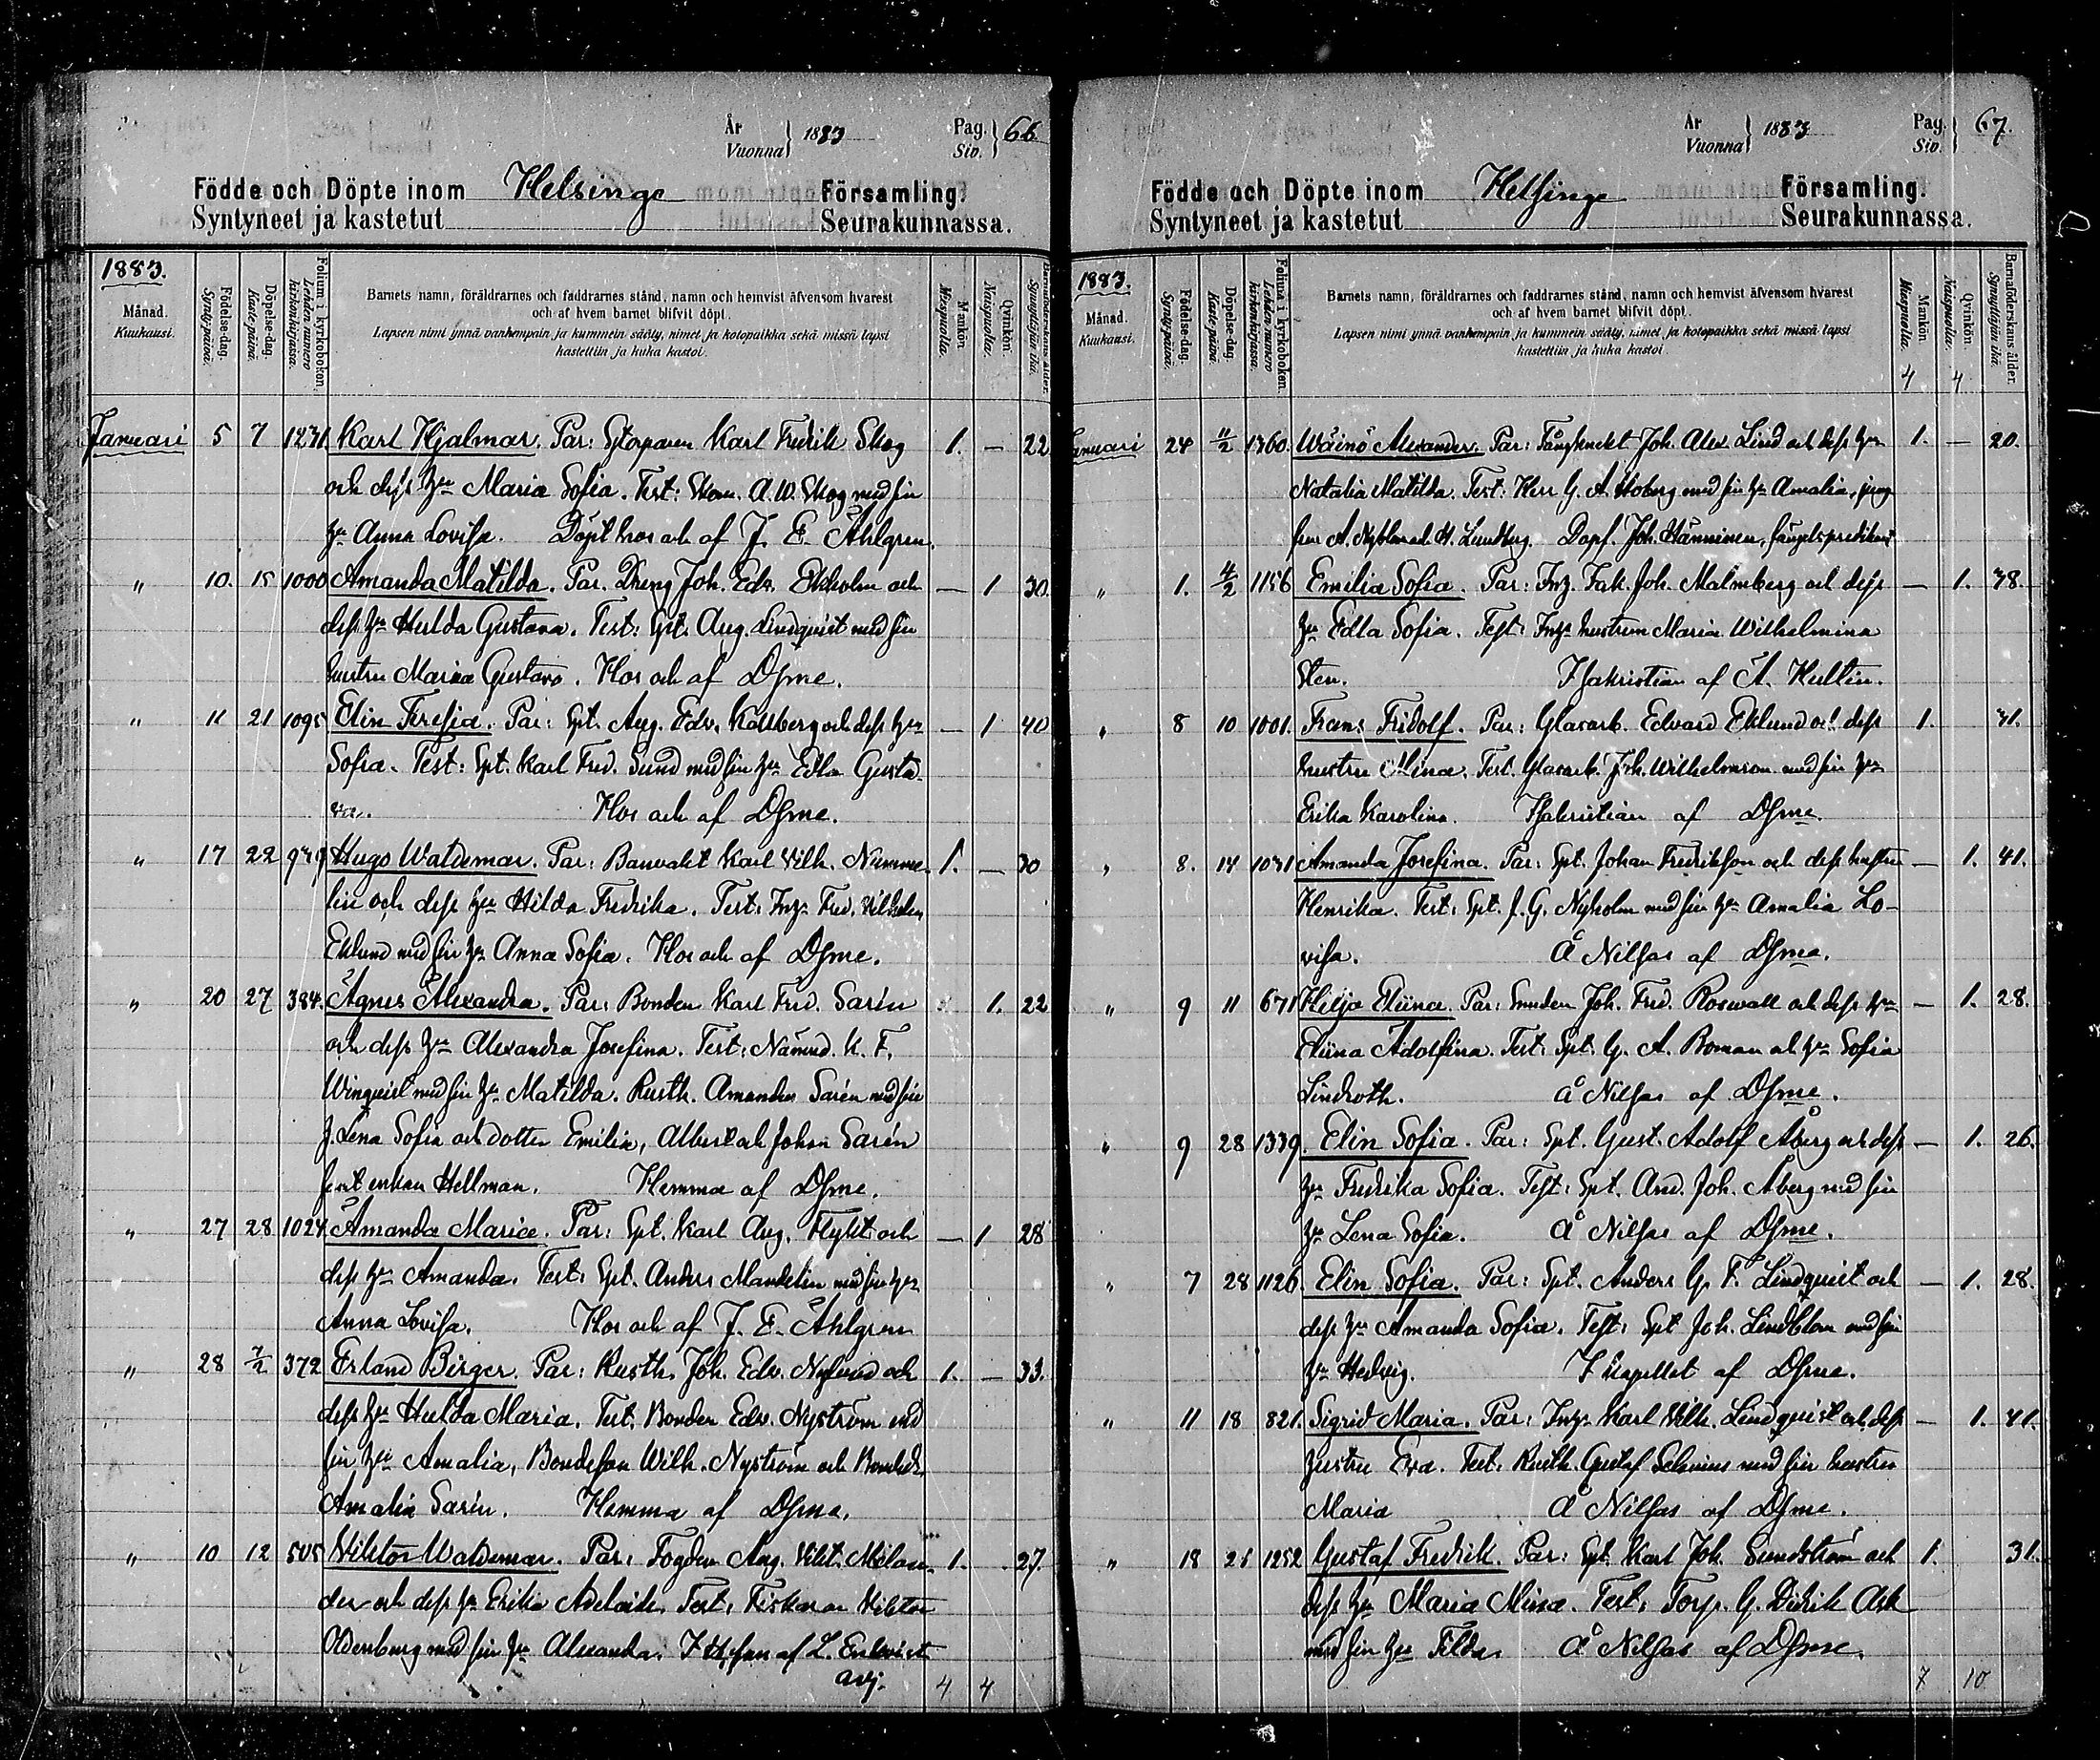 År
Vuonna } 1883
Pag.
Siv. } 66
Födde och Döpte inom Helsinge Församling.
Syntyneet ja kastetut Seurakunnassa.
1883.
Månad.
Kuukausi.
Födelse-dag.
Synty-päivä.
Döpelse-dag.
Kaste-päivä.
Folium i kyrkoboken.
Lehden numero kirkonkirjassa.
Barnets namn, föräldrarnes och faddrarnes stånd, namn och hemvist äfvensom hvarest
och af hvem barnet blifvit döpt.
Lapsen nimi ynnä vanhempain ja kummein sääty, nimet ja kotopaikka sekä missä lapsi
kastettiin ja kuka kastoi.
Mankön.
Miespuolia.
Qvinkön.
Naispuolia.
Barnaföderskans ålder.
Synnyttäjän ikä.
Januari 5 7 1231 Karl Hjalmar. Par: Karl Fredrik Skog 1. — 22
och dess hu Maria Sofia. Test: A. W. Skog med sin
hu Anna Lovisa. Döpt hos och af J. E. Ahlgren.
" 10. 15 1000 Amanda Matilda. Par. Dreng Joh. Edv. Ekholm och — 1 30.
dess hu Hulda Gustava. Test: Spt. Aug. Lindqvist med sin
hustru Maria Gustava. Hos och af Dsme.
" 11 21 1095 Elin Teresia. Par: Spt. Aug. Edv. Kallberg och dess hu — 1 40
Sofia. Test: Spt. Karl Fred. Sund med sin hu Edla Gusta-
va. Hos och af Dsme.
" 17 22 939 Hugo Waldemar. Par: Banvakt Karl Vilh. Numme- 1. — 30
lin och dess hu Hilda Fredrika. Test: Inh. Fred. Vilhelm
Eklund med sin hu Anna Sofia. Hos och af Dsme.
" 20 27 384. Agnes Alexandra. Par: Bonden Karl Fred. Sarén 1. 22
och dess hu Alexandra Josefina. Test: Nämnd. K. F.
Winqvist med sin hu Matilda. Rusth. Amandus Sarén med sin
h. Lena Sofia och dotter Emilia, Albert och Johan Sarén
samt enkan Hellman. Hemma af Dsme.
" 27 28 1024 Amanda Maria. Par: Spt. Karl Aug. Flykt och — 1 28
dess hu Amanda. Test: Spt. Anders Mandelin med sin hu
Anna Lovisa. Hos och af J. E. Ahlgren
" 28 7/2 372 Erland Birger. Par: Rusth. Joh. Edv. Nylund och 1. — 33.
dess hu Hulda Maria. Test: Bonden Edv. Nyström med
sin hu Amalia, Bondeson Wilh. Nyström och Bonded.
Amalia Sarén. Hemma af Dsme.
" 10 12 505 Viktor Waldemar. Par: Fogden Aug. Vikt. Melan- 1. 27.
der och dess hu Erika Adelaide. Test: Fiskaren Viktor
Oldenburg med sin hu Alexandra. af L. Enqvist
adj.
4 4
År
Vuonna } 1883
Pag.
Siv. } 67.
Födde och Döpte inom Helsinge Församling.
Syntyneet ja kastetut Seurakunnassa.
1883.
Månad.
Kuukausi.
Födelse-dag.
Synty-päivä.
Döpelse-dag.
Kaste-päivä.
Folium i kyrkoboken.
Lehden numero kirkonkirjassa.
Barnets namn, föräldrarnes och faddrarnes stånd, namn och hemvist äfvensom hvarest
och af hvem barnet blifvit döpt.
Lapsen nimi ynnä vanhempain ja kummein sääty, nimet ja kotopaikka sekä missä lapsi
kastettiin ja kuka kastoi.
Mankön.
Miespuolia.
Qvinkön
Naispuolia.
Barnaföderskans ålder.
Synnyttäjän ikä.
4 4
Januari 24 11/2 1360. Wäinö Alexander. Par: Fångknekt Joh. Alex. Lind och dess hu 1. — 20.
Natalia Matilda. Test: Herr G. A. Moberg med sin hu Amalia, jung-
frur A. Nyblom och H. Lundberg. Döpt. Joh. Hänninen, fängelsepredikant
" 1. 4/2 1156 Emilia Sofia. Par: Inh. Jak. Joh. Malmberg och dess — 1. 38.
hu Edla Sofia. Test: Inh. hustrun Maria Wilhelmina
Sten. I Sakristian af A. Hultin.
" 8 10 1001. Frans Fridolf. Par: Glasarb. Edvard Eklund och dess 1. 31.
hustru Mina. Test. Glasarb. Joh. Wilhelmson med sin hu
Erika Karolina. I Sakristian af Dsme.
" 8. 14 1031 Amanda Josefina. Par: Spt. Johan Fredrikson och dess hustru — 1. 41.
Henrika. Test: Spt. J. G. Nyholm med sin hu Amalia Lo-
visa. Å Nilsas af Dsme.
" 9 11 671 Hilja Eliina. Par: Smeden Joh. Fred. Roswall och dess hu — 1. 28.
Eliina Adolfina. Test: Spt. G. A. Roman och hu Sofia
Lindroth. Å Nilsas af Dsme.
" 9 28 1339. Elin Sofia. Par: Spt. Gust. Adolf Åberg och dess — 1. 26.
hu Fredrika Sofia. Test: Spt. And. Joh. Åberg med sin
hu Lena Sofia. Å Nilsas af Dsme.
" 7 28 1126. Elin Sofia. Par: Spt. Anders G. F. Lindqvist och — 1. 28.
dess hu Amanda Sofia. Test: Spt. Joh. Lindblom med sin
hu Hedvig. I kapellet af Dsme.
" 11 18 821. Sigrid Maria. Par: Inh. Karl Vilh. Lindqvist och dess — 1. 41.
hustru Eva. Test: Rusth. Gustaf Selenius med sin hustru
Maria Å Nilsas af Dsme.
" 18 21 1252 Gustaf Fredrik. Par: Spt. Karl Joh. Sundström och 1. 31.
dess hu Maria Mina. Test: Torp. G. Didrik Ask
med sin hu Tilda. Å Nilsas af Dsme.
7 10